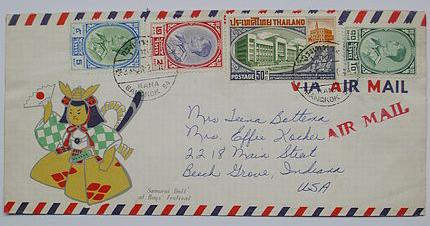 ประเทศไทย THAILAND
POSTAGE 50
5
2
VIA AIR MAIL
AIR MAIL
BANGKOK
Mrs Leena Bottema
Mrs. Effie Kocher
2218 Main Street
Beech Grove, Indiana
USA
Samurai Doll
at Boys' Festival